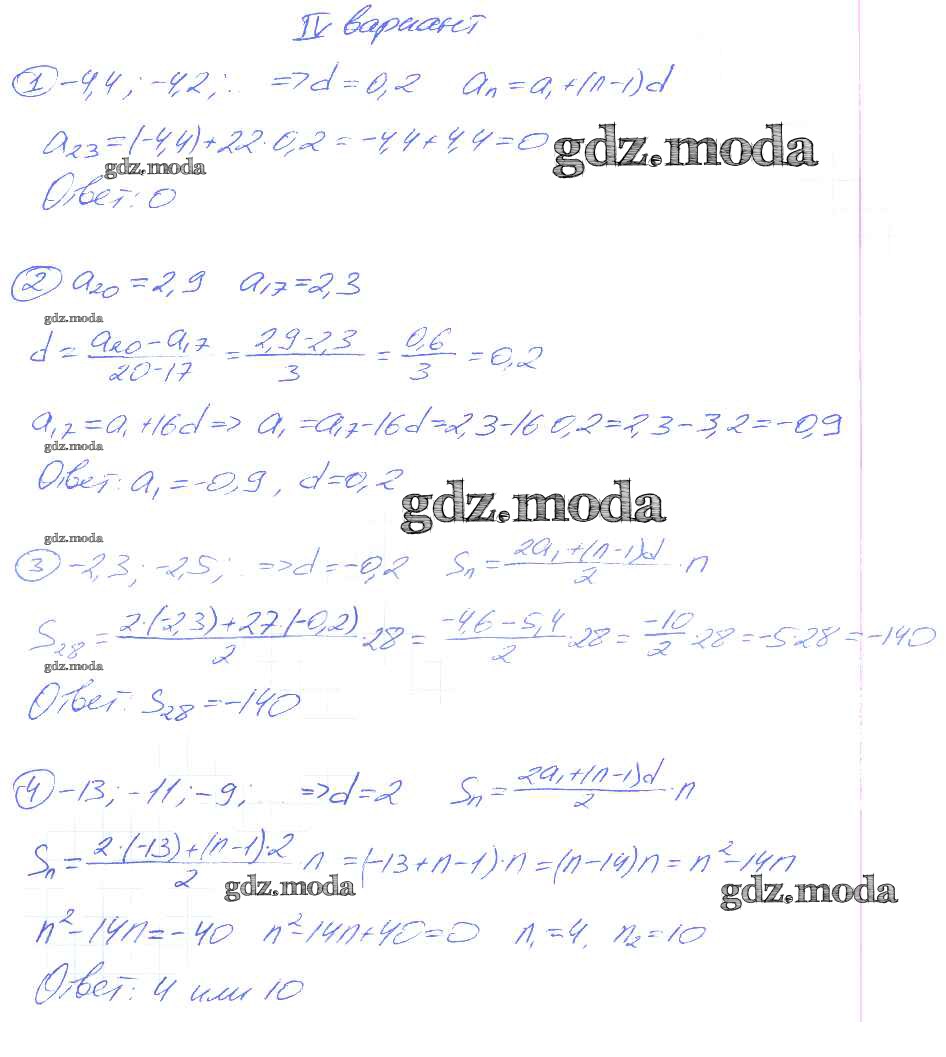 IV вариант
① -4,4; -4,2; .. => d = 0,2 aₙ = a₁ + (n-1)d
a₂₃ = (-4,4) + 22·0,2 = -4,4 + 4,4 = 0
gdz.moda
gdz.moda
Ответ: 0
② a₂₀ = 2,9 a₁₇ = 2,3
gdz.moda
d = (a₂₀ - a₁₇)/(20-17) = (2,9-2,3)/3 = 0,6/3 = 0,2
a₁₇ = a₁ + 16d => a₁ = a₁₇ - 16d = 2,3 - 16 0,2 = 2,3 - 3,2 = -0,9
gdz.moda
Ответ: a₁ = -0,9, d = 0,2
gdz.moda
gdz.moda
③ -2,3; -2,5; .. => d = -0,2 Sₙ = (2a₁ + (n-1)d)/2 · n
S₂₈ = (2·(-2,3) + 27·(-0,2))/2 · 28 = (-4,6 - 5,4)/2 · 28 = -10/2 · 28 = -5·28 = -140
gdz.moda
Ответ: S₂₈ = -140
④ -13; -11; -9; .. => d = 2 Sₙ = (2a₁ + (n-1)d)/2 · n
Sₙ = (2·(-13) + (n-1)·2)/2 n = (-13 + n - 1)·n = (n-14)n = n² - 14n
gdz.moda
gdz.moda
n² - 14n = -40 n² - 14n + 40 = 0 n₁ = 4, n₂ = 10
Ответ: 4 или 10